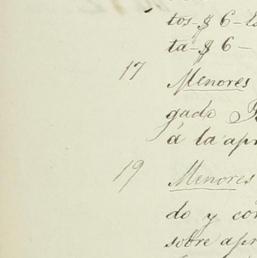 tos-$6-
ta-$6-
17 Menores
gado
á la apr
19 Menores
do y con
sobre apr